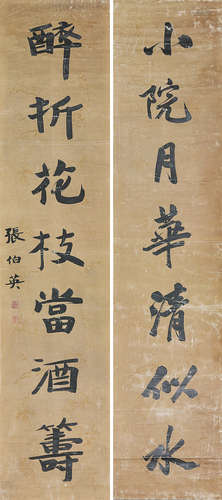 小院月華清似水
醉折花枝當酒籌
張伯英